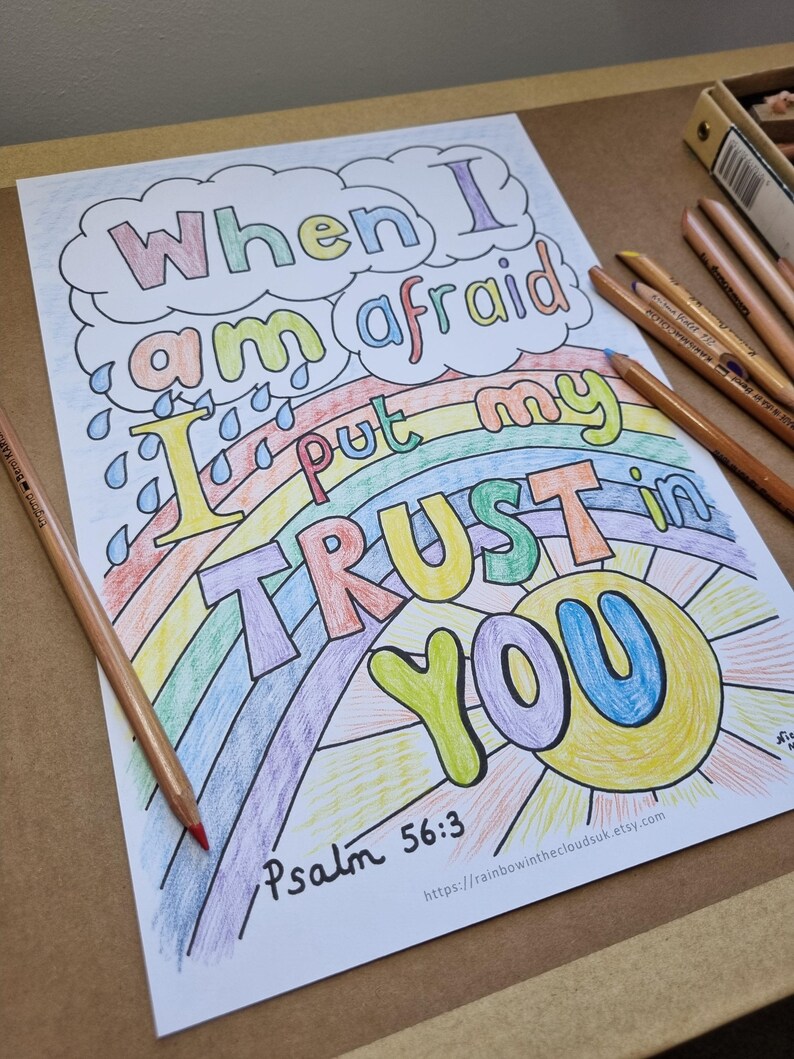 When I
am afraid
I put my
TRUST in
YOU
Psalm 56:3
https://rainbowinthecloudsuk.etsy.com